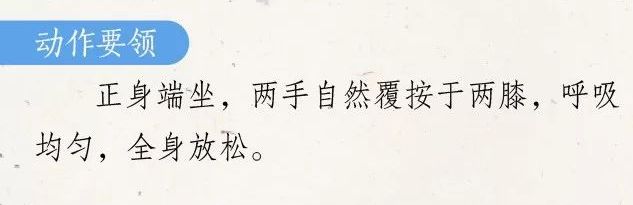 动作要领
正身端坐，两手自然覆按于两膝，呼吸
均匀，全身放松。